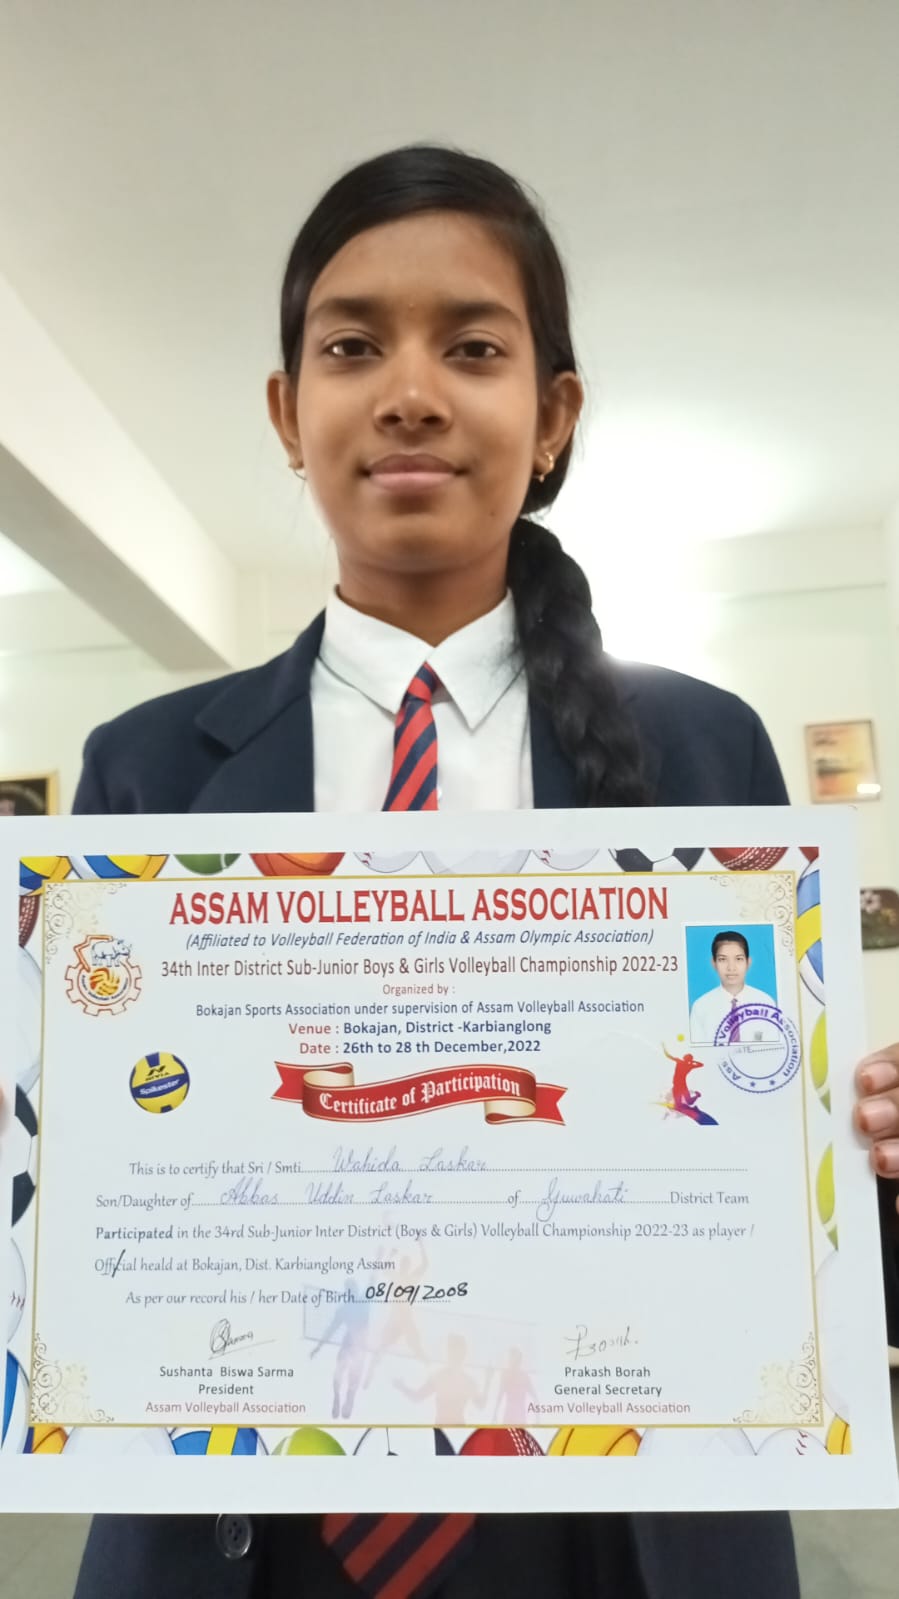 ASSAM VOLLEYBALL ASSOCIATION
(Affiliated to Volleyball Federation of India & Assam Olympic Association)
34th Inter District Sub-Junior Boys & Girls Volleyball Championship 2022-23
Organized by :
Bokajan Sports Association under supervision of Assam Volleyball Association
Venue : Bokajan, District -Karbianglong
Date : 26th to 28 th December,2022
Volleyball Association
DATE
NIVIA
Spikester
Certificate of Participation
This is to certify that Sri / Smti Wahida Laskar
Son/Daughter of Abbas Uddin Laskar of Guwahati District Team
Participated in the 34rd Sub-Junior Inter District (Boys & Girls) Volleyball Championship 2022-23 as player /
Official heald at Bokajan, Dist. Karbianglong Assam
As per our record his / her Date of Birth 08/09/2008
Sushanta Biswa Sarma
President
Assam Volleyball Association
Prakash Borah
General Secretary
Assam Volleyball Association